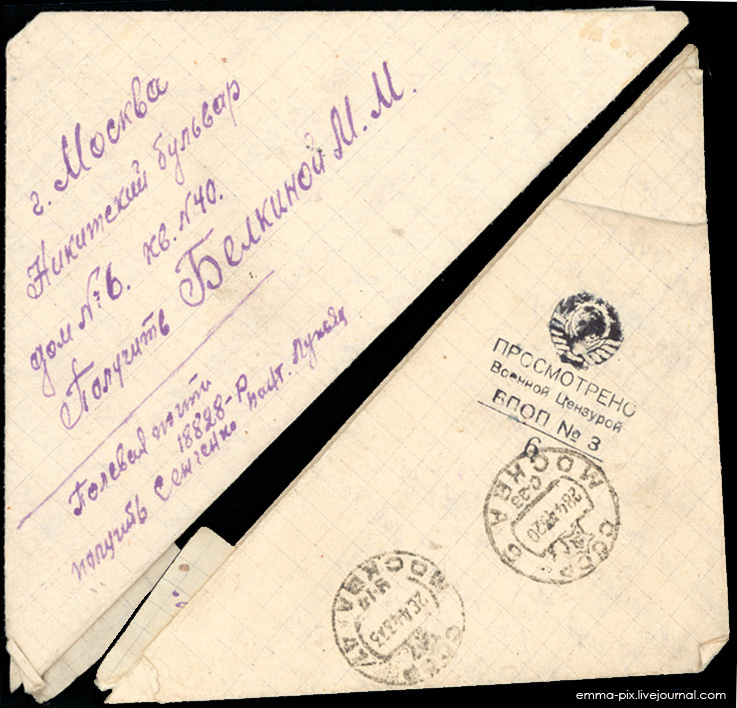 г. Москва
Никитский бульвар
дом №6. кв. №40.
Получить Белкиной М. М.
Полевая почта
18828-Р
получить Сенченко
ПРОСМОТРЕНО
Военной Цензурой
ВПОП № 3
6
МОСКВА
СССР
МОСКВА
СССР
emma-pix.livejournal.com